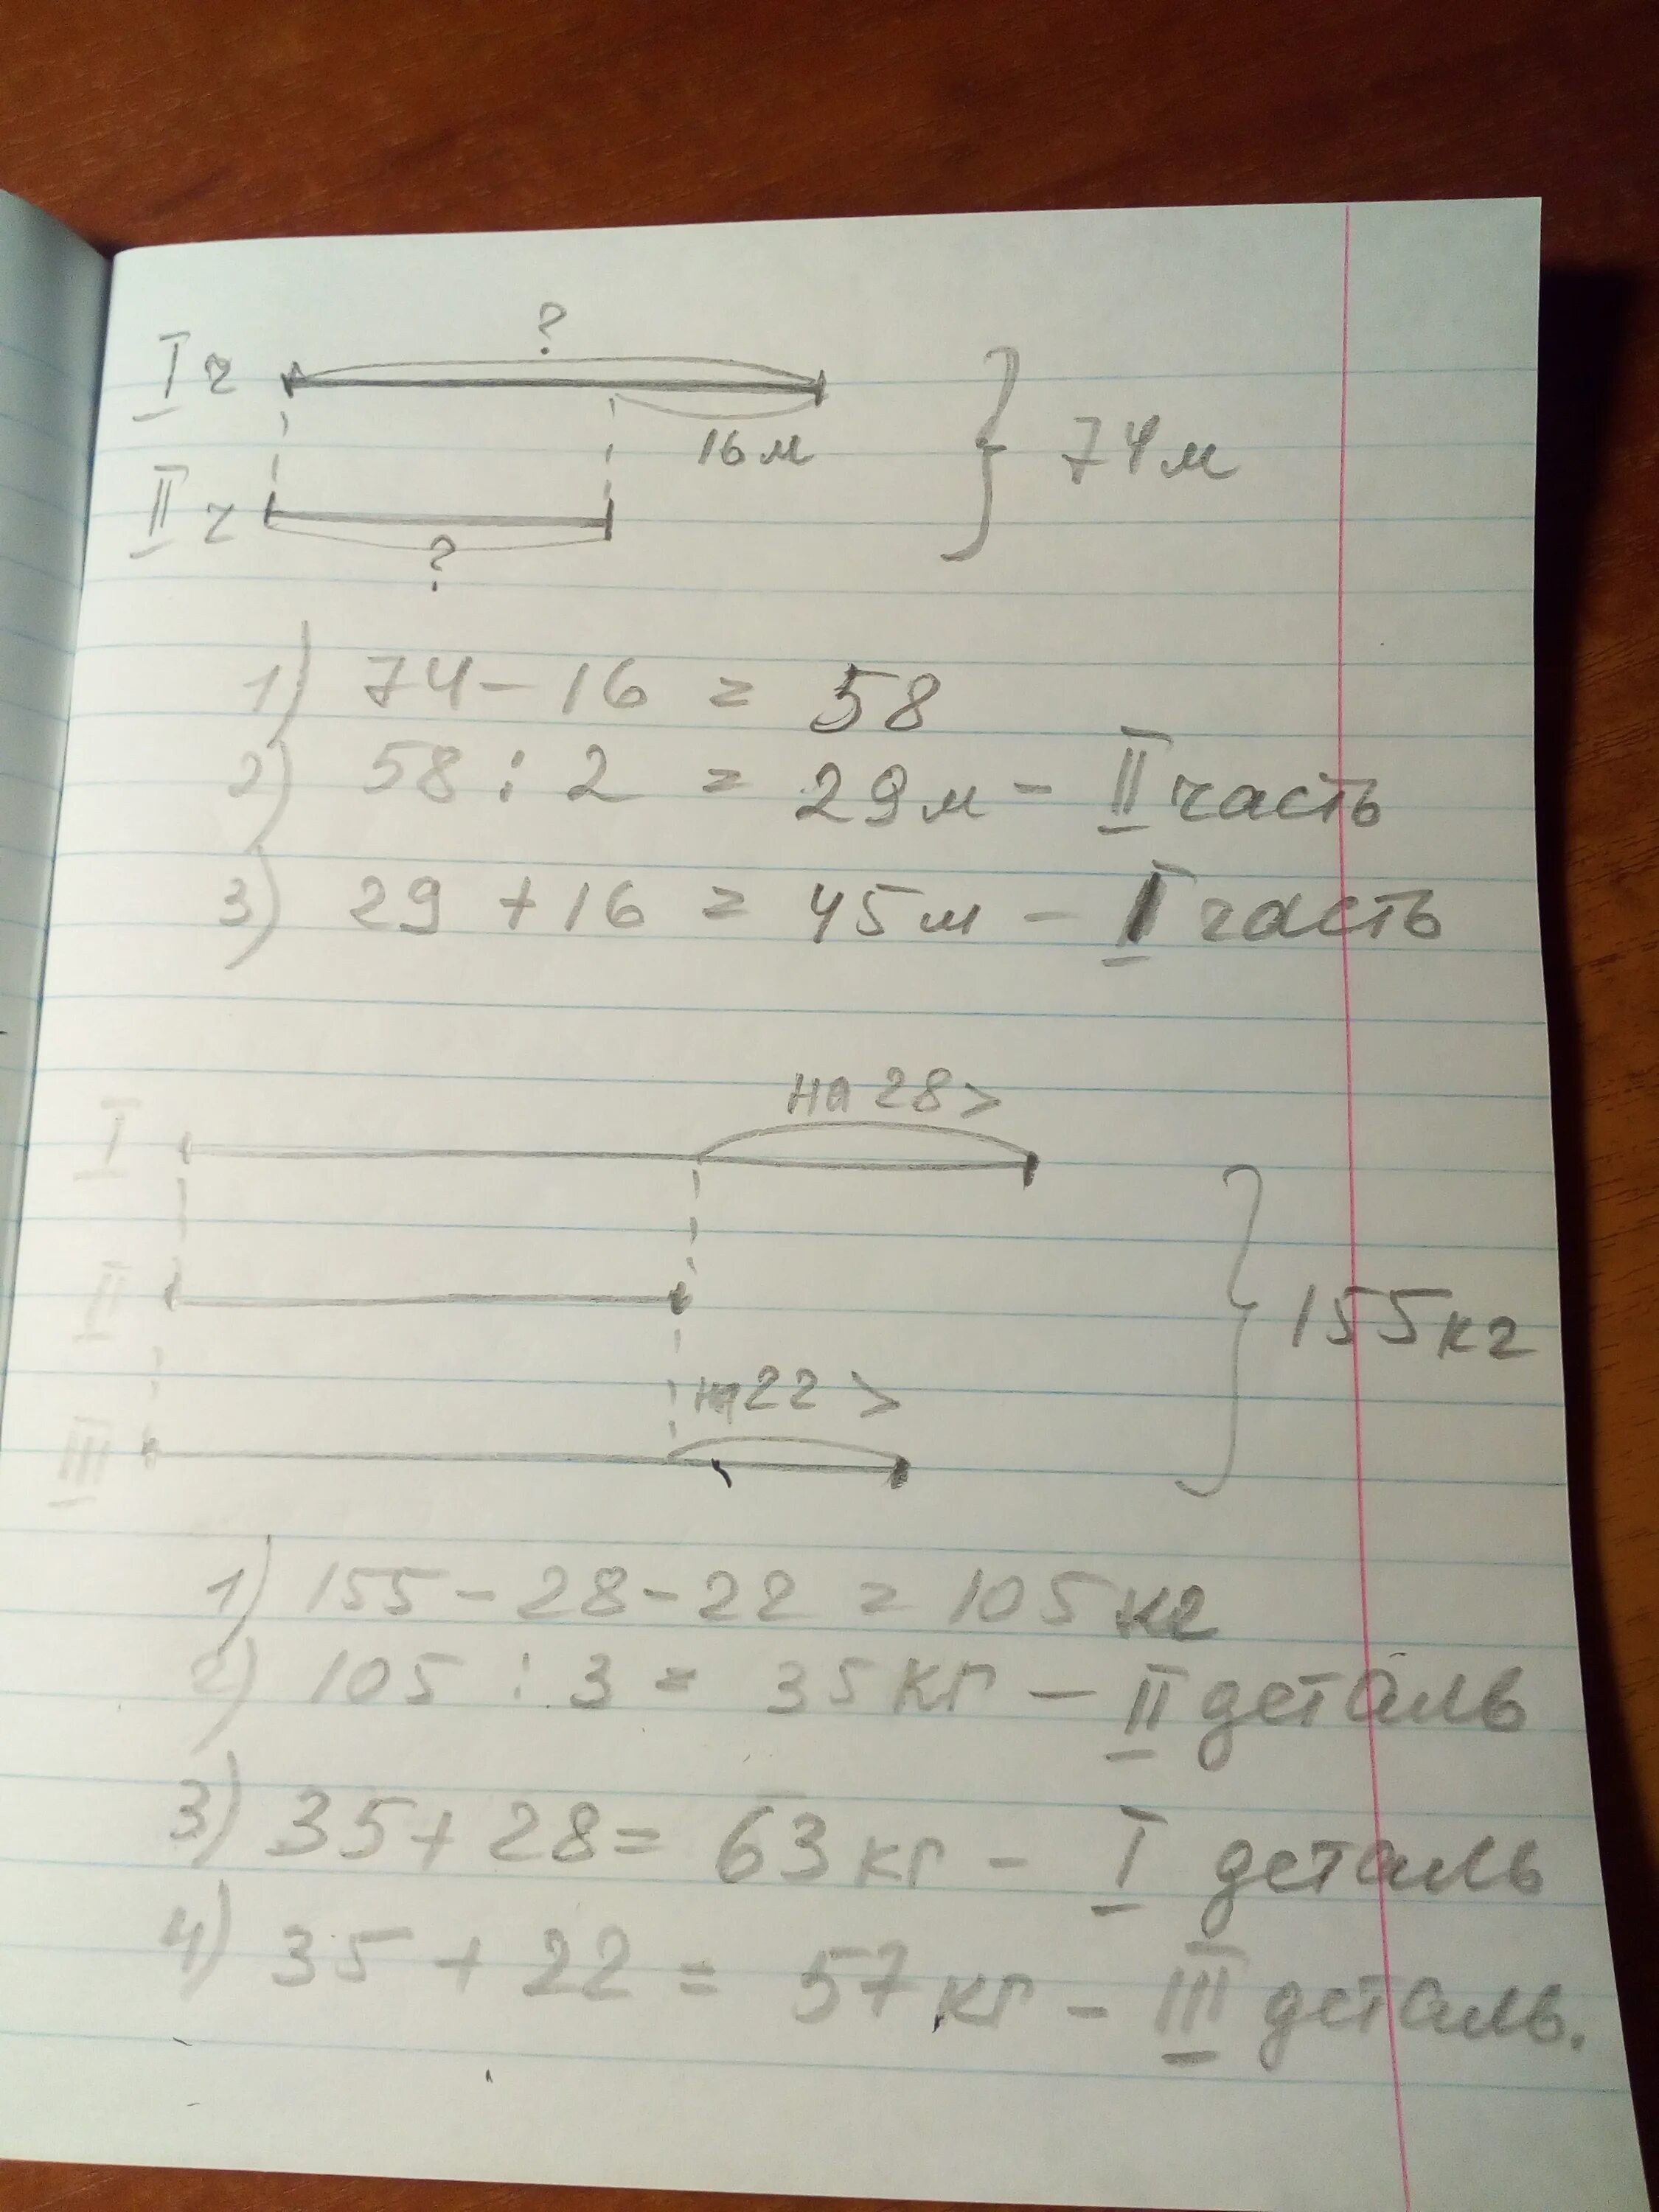 ?
I ч
16 м
74 м
II ч
?
1) 74 - 16 = 58
2) 58 : 2 = 29 м - II часть
3) 29 + 16 = 45 м - I часть
на 28 >
I
II
155 кг
на 22 >
III
1) 155 - 28 - 22 = 105 кг
2) 105 : 3 = 35 кг - II деталь
3) 35 + 28 = 63 кг - I деталь
4) 35 + 22 = 57 кг - III деталь.